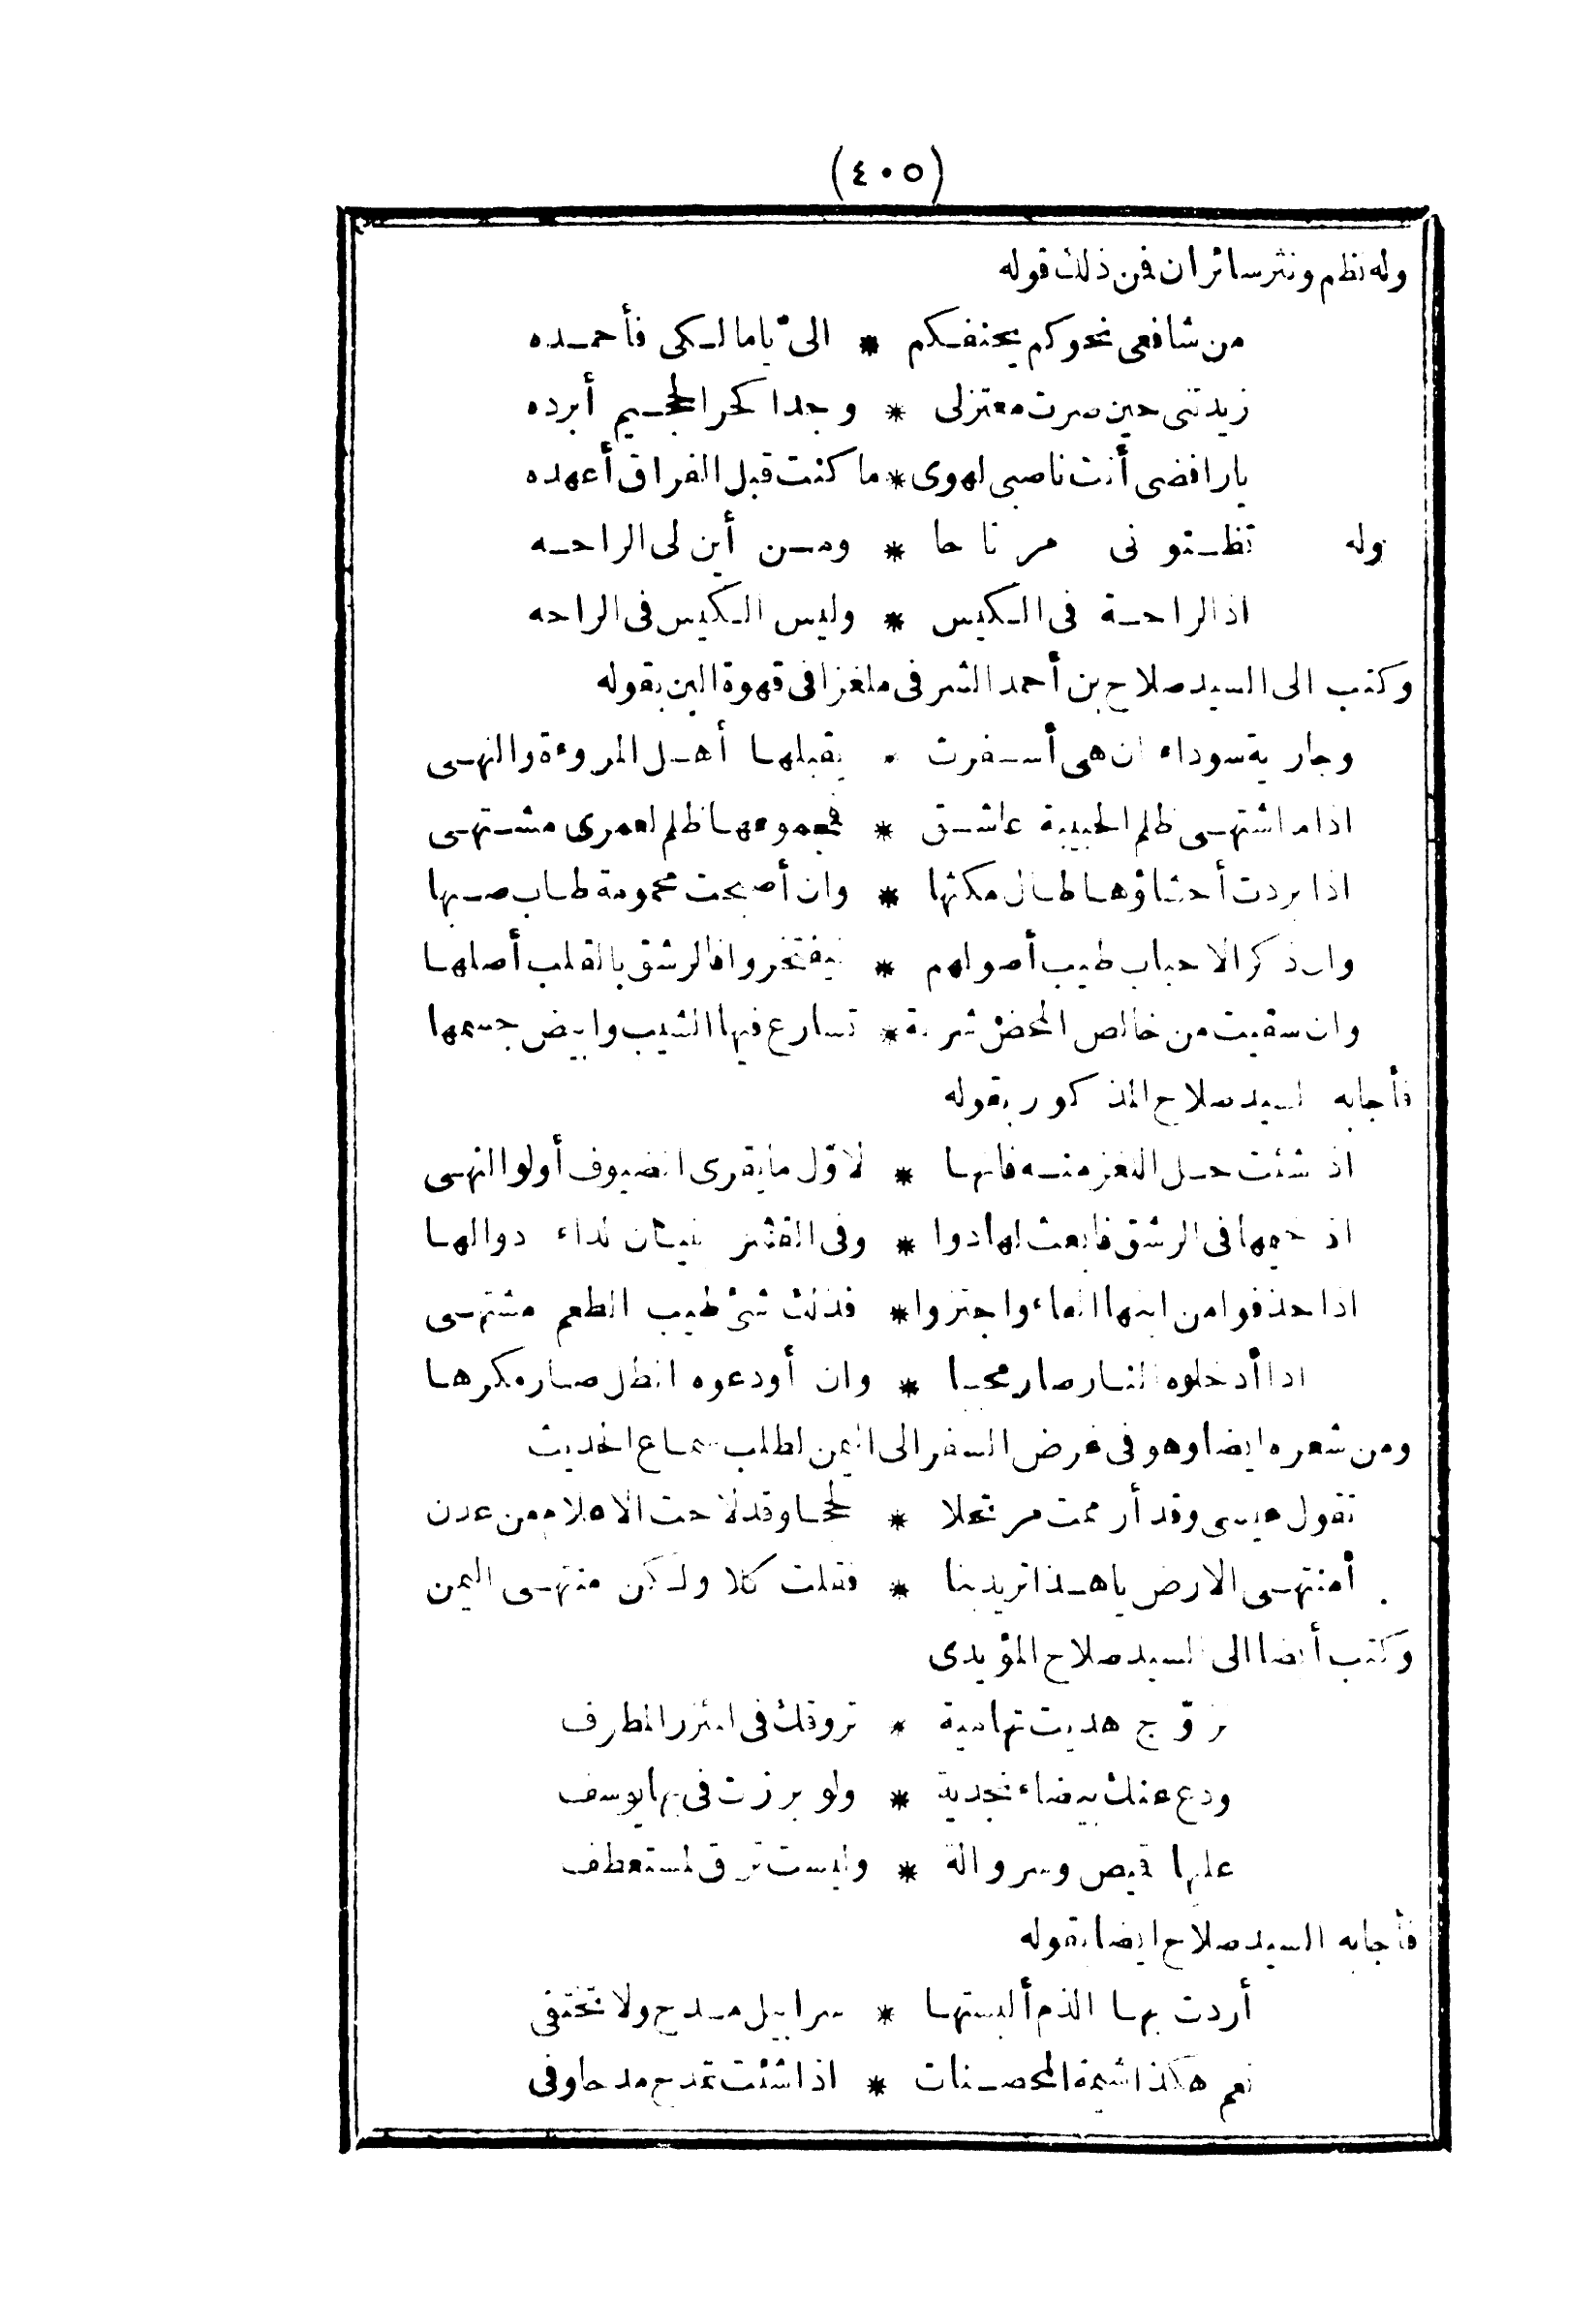 (٤٠٥)
وله نظم ونثر سائران فمن ذلك قوله
من شافعى نحوكم يحنفكم * الىّ يا مالكى فأحمده
زيدتنى حين صرت معتزلى * وجدا كحر الجحيم أبرده
يا رافضى أنت ناصبى لهوى * ما كنت قبل الفراق أعهده
وله تظنونى مرتاحا * ومن أين لى الراحه
اذ الراحة فى الكيس * وليس الكيس فى الراحه
وكتب الى السيد صلاح بن أحمد الشرفى ملغزا فى قهوة البن بقوله
وجارية سوداء ان هى أسفرت * يقبلها أهل المروءة والنهى
اذا ما اشتهى ظلم الحبيبة عاشق * فمجموعها ظلم لعمرى مشتهى
اذا بردت أحشاؤها طال مكثها * وان أصبحت محمومة طاب صبها
وان ذكر الاحباب طيب أصولهم * ليفتخروا فالرشق بالقلب أصلها
وان سقيت من خالص المحض شربة * تسارع فيها الشيب وابيض جسمها
فأجابه السيد صلاح المذكور بقوله
اذا شئت حل اللغز منه فانها * لاوّل ما يقرى الضيوف أولو النهى
اذ خيمها فى الرشق فابعث لها دوا * وفى القشر تبيان لداء دوالها
اذا حذفوا من ابنها الماء واجتزوا * فذلك شئ طيب الطعم مشتهى
اذا أدخلوه النار صار محببا * وان أودعوه الظل صار مكرها
ومن شعره ايضا وهو فى غرض السفر الى اليمن لطلب سماع الحديث
تقول عيسى وقد أزممت مرتحلا * لحجا وقد لاحت الاعلام من عدن
أمنتهى الارض يا هذا تريد بنا * فقلت كلا ولكن منتهى اليمن
وكتب أيضا الى السيد صلاح المؤيدى
تزوّج هديت تهامية * تروقك فى المئزر المطرف
ودع عنك بيضاء نجدية * ولو برزت فى بها يوسف
عليها قميص وسروالة * وليست ترق لمستعطف
فأجابه السيد صلاح ايضا بقوله
أردت بها الذم ألبستها * سرابيل مدح ولا تختفى
نعم هكذا شيمة المحصنات * اذا شئت تمدح مدحا وفى